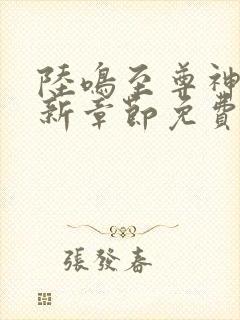 陸鳴至尊神
新章節免費
張發春